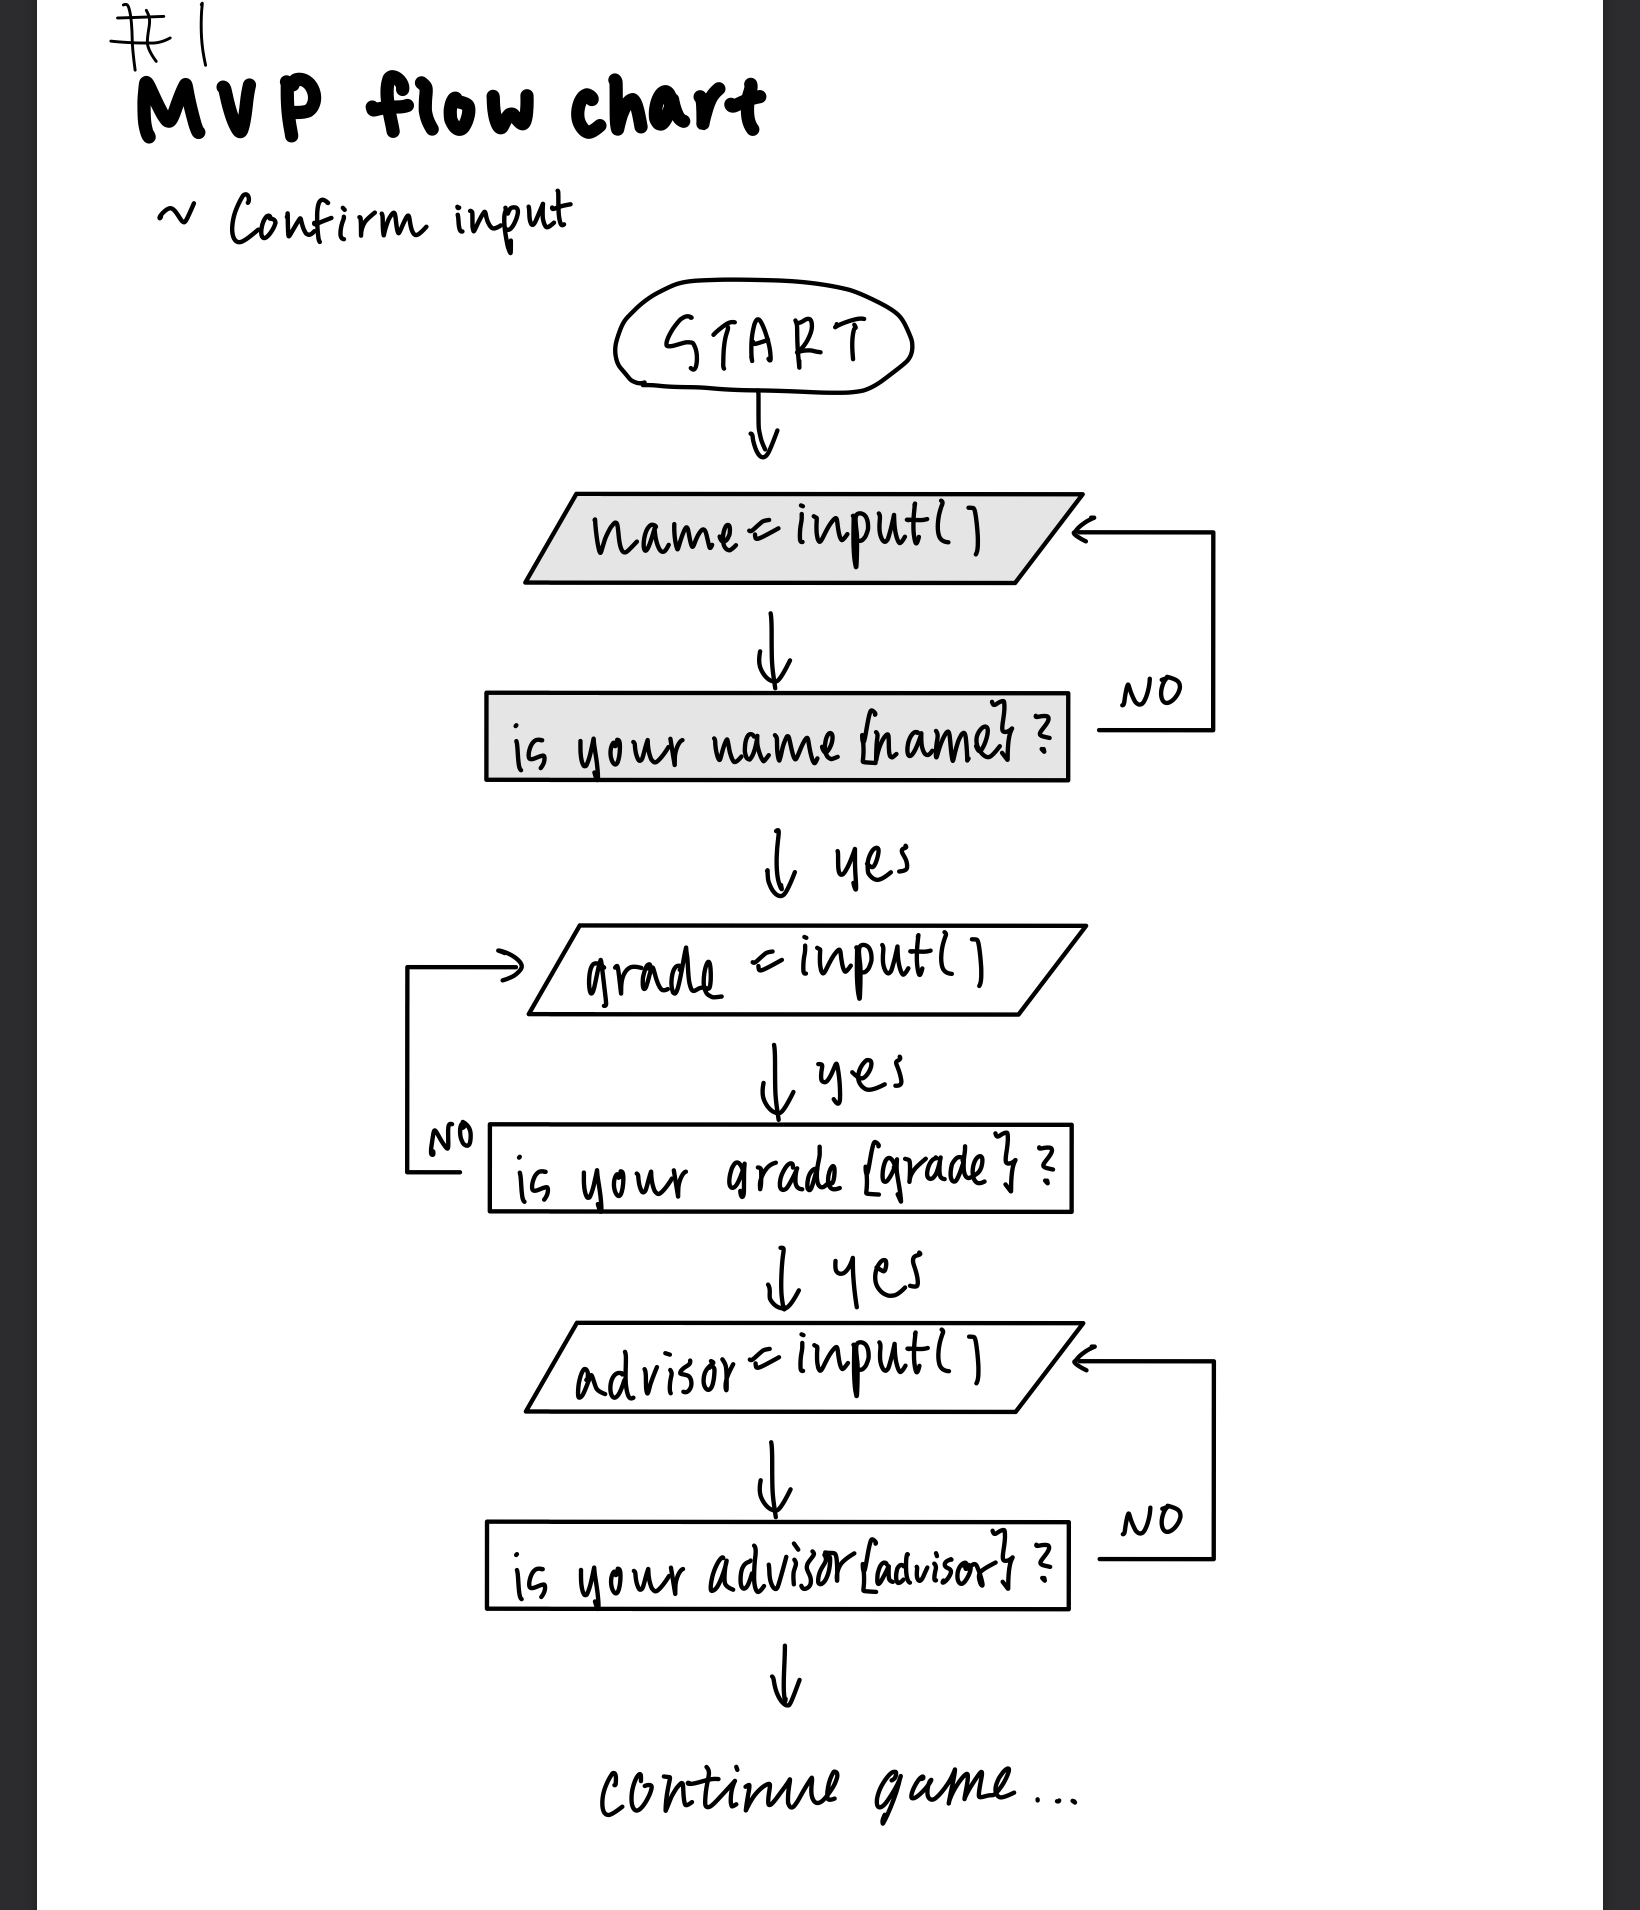 #1
MVP flow chart
~ Confirm input
START
name = input()
NO
is your name {name}?
yes
grade = input()
yes
NO
is your grade {grade}?
yes
advisor = input()
NO
is your advisor {advisor}?
continue game...